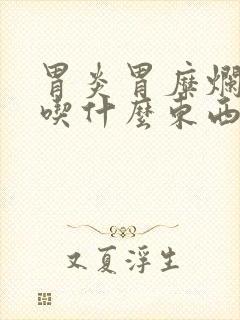 胃炎胃糜爛
喫什麼東西
又夏浮生